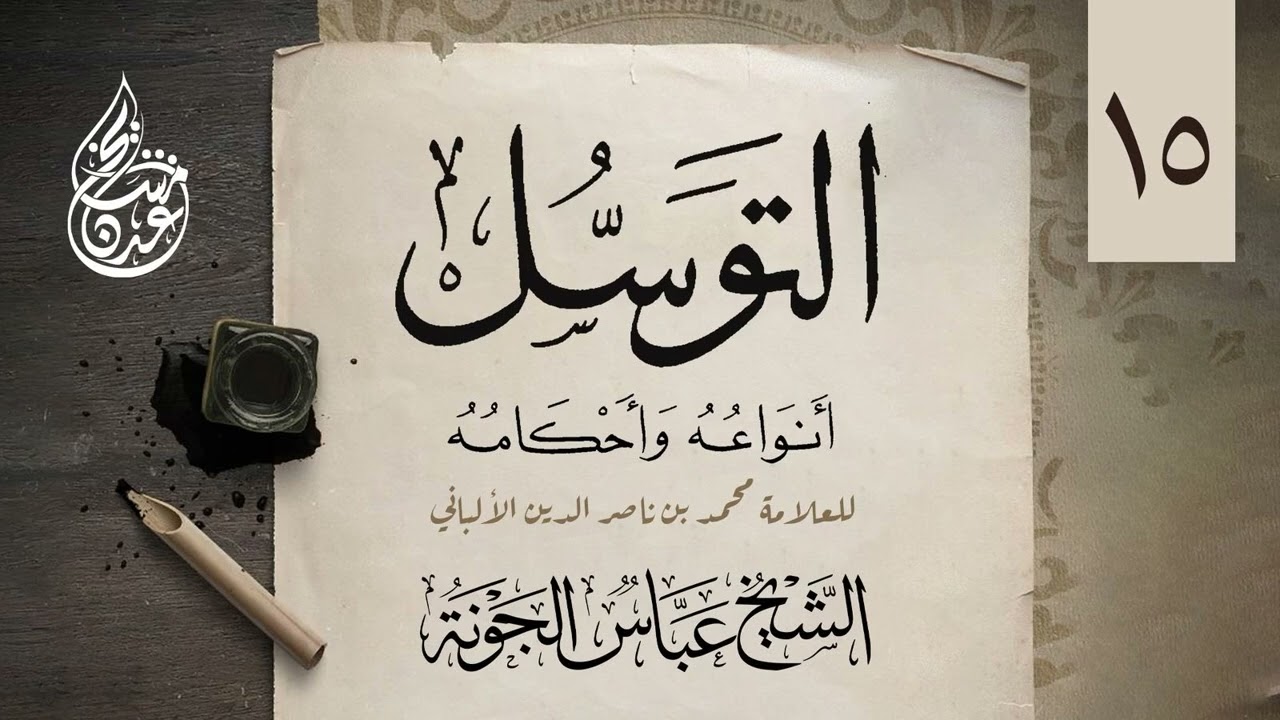 ١٥
مشايخ عدن
التوسل
أَنَوَاعُهُ وَأَحْكَامُهُ
للعلامة محمد بن ناصر الدين الألباني
الشَّيْخُ عَبَّاسُ الجَوْنَةُ